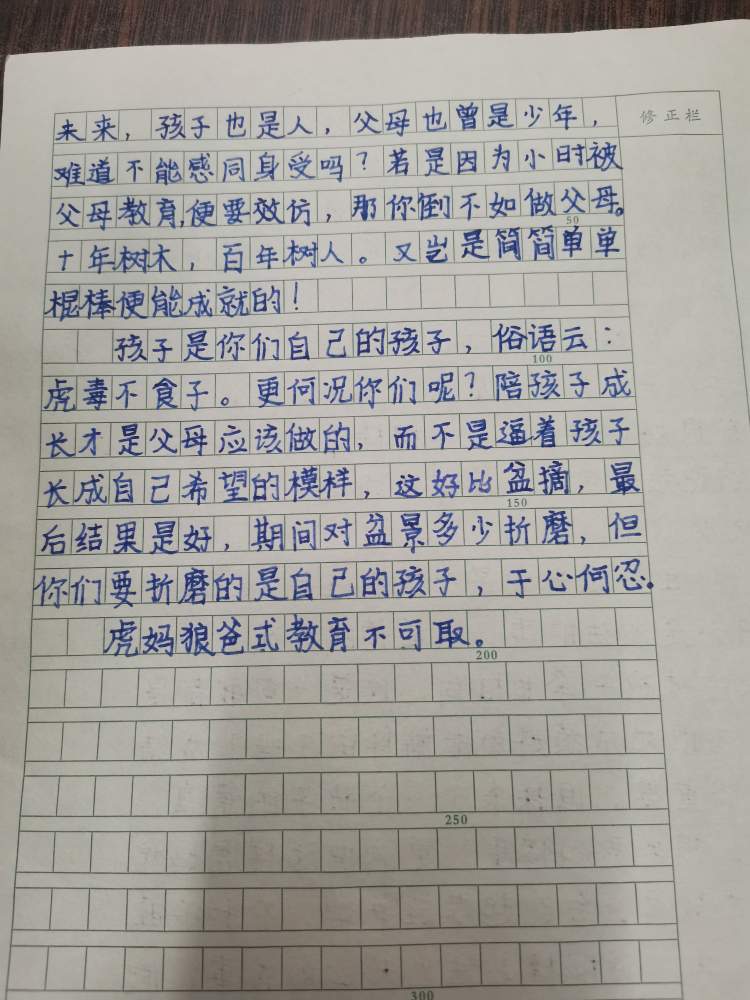 修正栏
未来，孩子也是人，父母也曾是少年，
难道不能感同身受吗？若是因为小时被
父母教育,便要效仿，那你倒不如做父母。
50
十年树木，百年树人。又岂是简简单单
棍棒便能成就的！
孩子是你们自己的孩子，俗语云：
100
虎毒不食子。更何况你们呢？陪孩子成
长才是父母应该做的，而不是逼着孩子
长成自己希望的模样，这好比盆摘，最
150
后结果是好，期间对盆景多少折磨，但
你们要折磨的是自己的孩子，于心何忍。
虎妈狼爸式教育不可取。
200
250
300